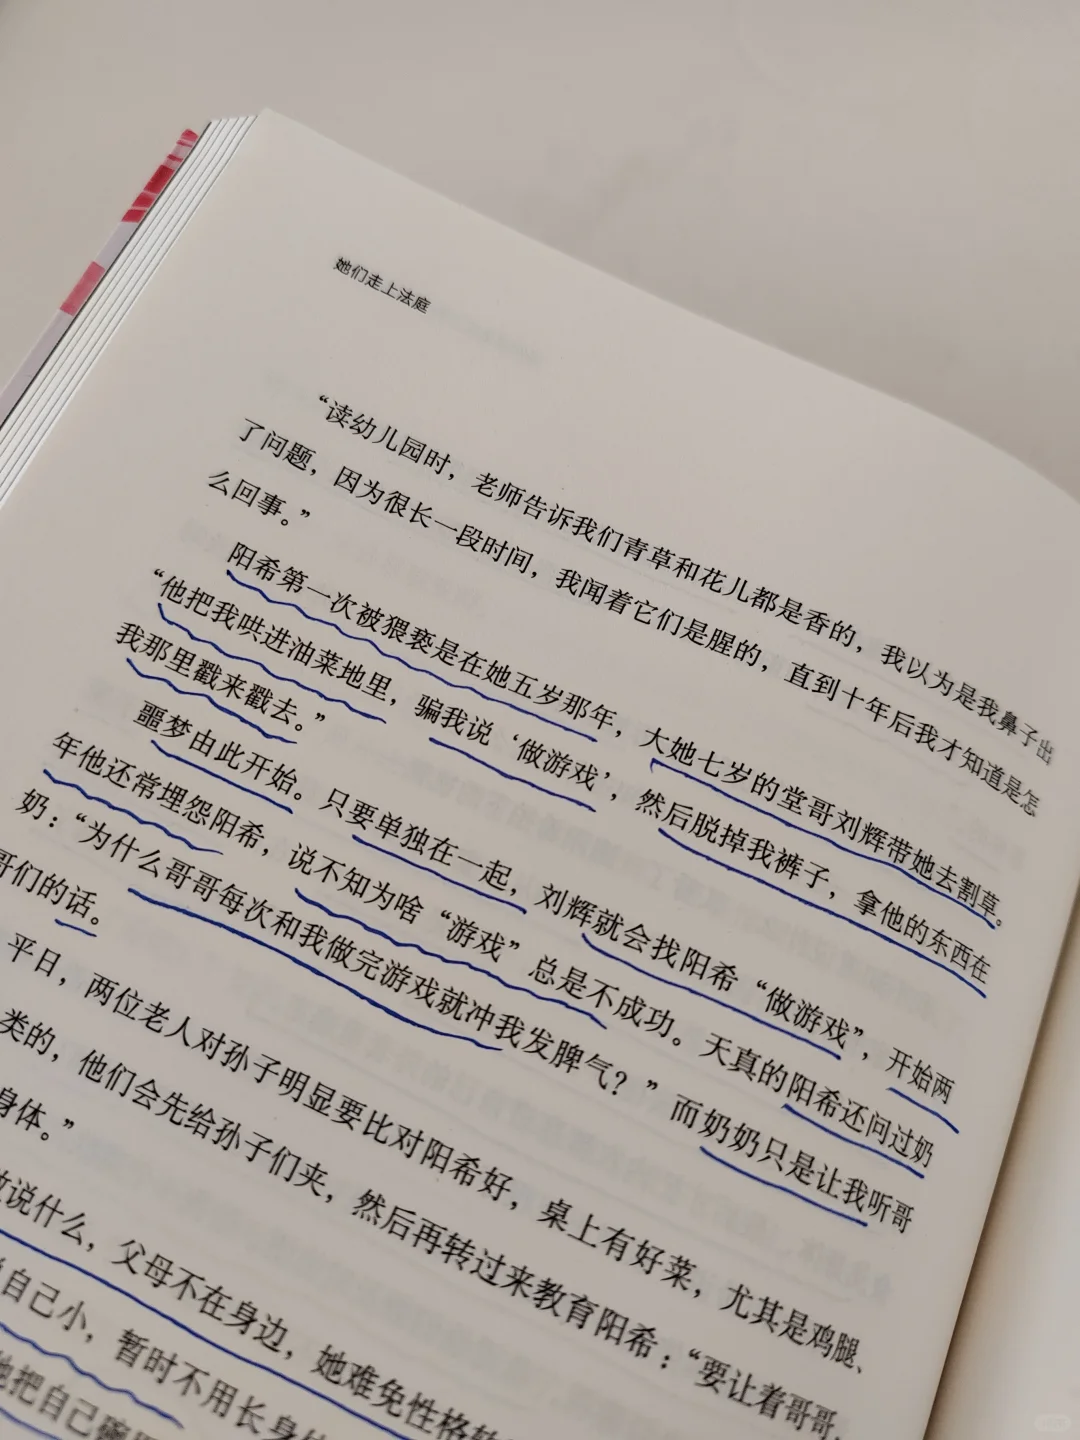 她们走上法庭
“读幼儿园时，老师告诉我们青草和花儿都是香的，我以为是我鼻子出
了问题，因为很长一段时间，我闻着它们是腥的，直到十年后我才知道是怎
么回事。”
阳希第一次被猥亵是在她五岁那年，大她七岁的堂哥刘辉带她去割草。
“他把我哄进油菜地里，骗我说‘做游戏’，然后脱掉我裤子，拿他的东西在
我那里戳来戳去。”
噩梦由此开始。只要单独在一起，刘辉就会找阳希“做游戏”，开始两
年他还常埋怨阳希，说不知为啥“游戏”总是不成功。天真的阳希还问过奶
奶：“为什么哥哥每次和我做完游戏就冲我发脾气？”而奶奶只是让我听哥
哥们的话。
平日，两位老人对孙子明显要比对阳希好，桌上有好菜，尤其是鸡腿、
类的，他们会先给孙子们夹，然后再转过来教育阳希：“要让着哥哥，
身体。”
说什么，父母不在身边，她难免性格
自己小，暂时不用长身
把自己碗